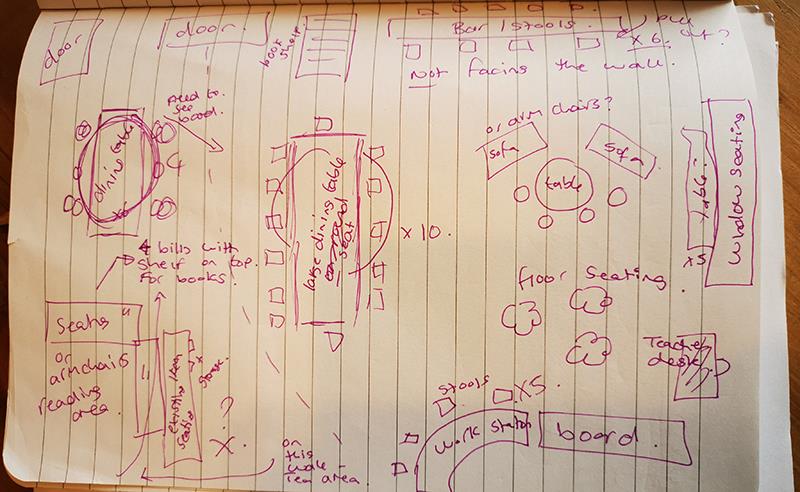 door
door.
book
shelf.
Bar / stools.
x 6.
out?
Not facing the wall.
need to
see
board.
dining table
x6
large dining table
seat
x 10.
or arm chairs?
sofa
sofa
table
table?
x5
window seating
floor seating
4 bills with
shelf on top.
for books.
Seating
4
or
armchairs
reading
area.
4
seating
x ?
on
this
wall -
area
Teacher
desk
stools
x5
work station
board.